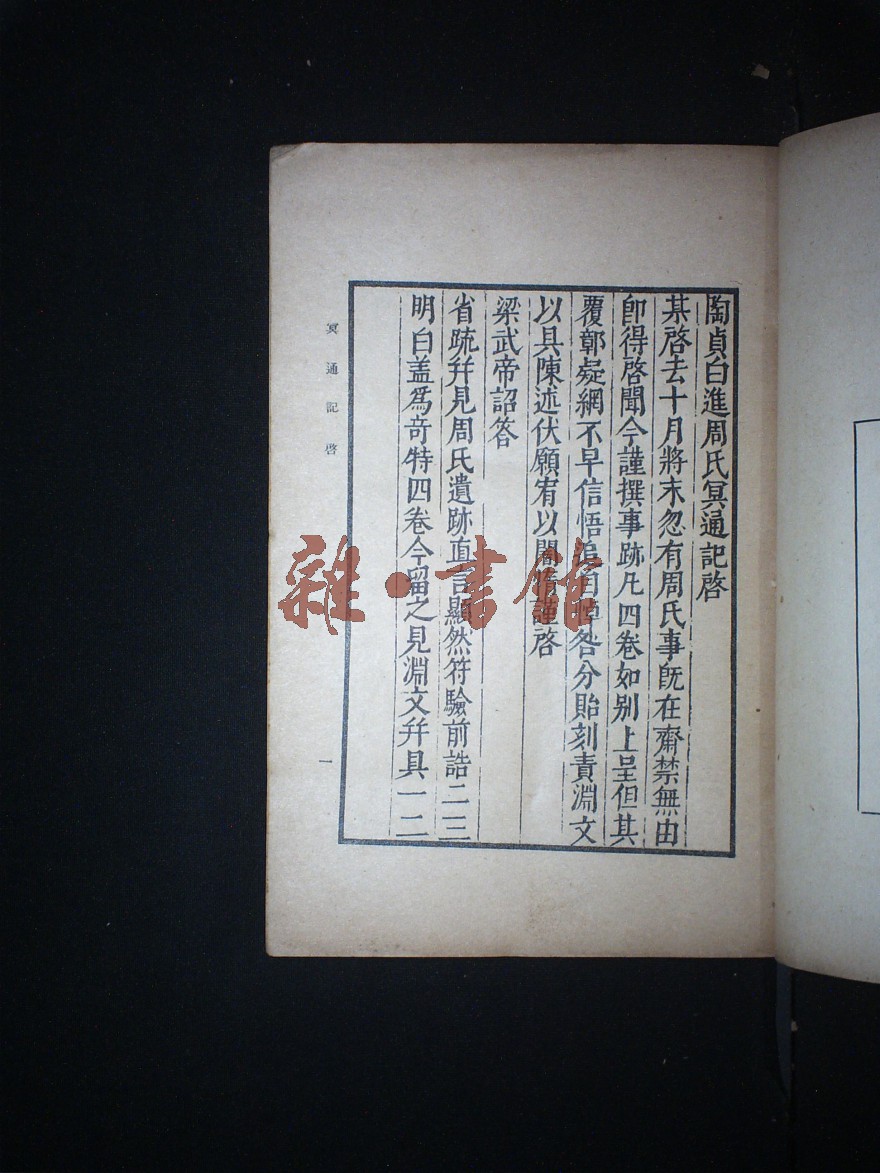 陶貞白進周氏冥通記啓
某啓去十月將末忽有周氏事旣在齋禁無由
卽得啓聞今謹撰事跡凡四卷如别上呈但其
覆鄣疑網不早信悟追自悼咎分貽刻責淵文
以具陳述伏願宥以闇惰謹啓
梁武帝詔答
省疏幷見周氏遺跡真言顯然符驗前誥二三
明白盖爲竒特四卷今留之見淵文幷具一二
冥通記啓
一
雜·書館